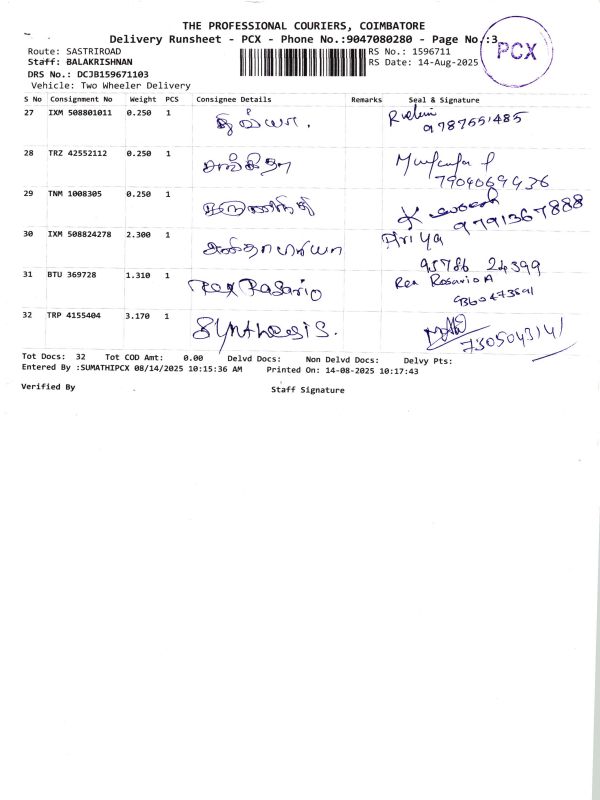 THE PROFESSIONAL COURIERS, COIMBATORE
Delivery Runsheet - PCX - Phone No.:9047080280 - Page No.:3
PCX
Route: SASTRIROAD RS No.: 1596711
Staff: BALAKRISHNAN RS Date: 14-Aug-2025
DRS No.: DCJB159671103
Vehicle: Two Wheeler Delivery
S No Consignment No Weight PCS Consignee Details Remarks Seal & Signature
27 IXM 508801011 0.250 1 திவ்யா.
9787651485
28 TRZ 42552112 0.250 1 சங்கீதா
7904069436
29 TNM 1008305 0.250 1
9791367888
30 IXM 508824278 2.300 1 Priya
95786 24399
31 BTU 369728 1.310 1 Rex Rosario Rex Rosario A
9360473591
32 TRP 4155404 3.170 1 Synthesis.
7305043141
Tot Docs: 32 Tot COD Amt: 0.00 Delvd Docs: Non Delvd Docs: Delvy Pts:
Entered By :SUMATHIPCX 08/14/2025 10:15:36 AM Printed On: 14-08-2025 10:17:43
Verified By Staff Signature